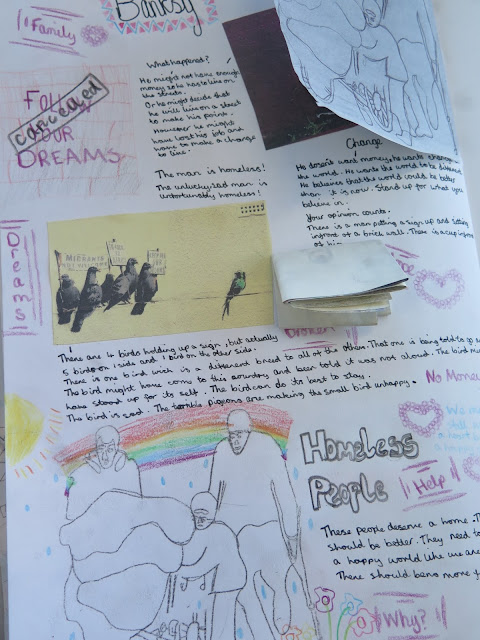 Banksy
Family
What happened?
He might not have enough
money so he has to live on
the streets.
Or he might decide that
he will live on a street
to make his point.
However he might
have lost his job and
want to make a change
to live.
The man is homeless!
The unlucky, sad man is
unfortunately homeless!
FOLLOW
YOUR
DREAMS
cancelled
Change
He doesn't want money, he wants change
the world. He wants the world to be different
He believes that the world could be better
than it is now. Stand up for what you
believe in.
Your opinion counts.
There is a man putting a sign up and sitting
infront of a brick wall. There is a cup infront
of him
Dreams
MIGRANTS
NOT WELCOME
GO BACK
TO AFRICA
KEEP OFF
OUR
WORMS
Broken
There are 4 birds holding up a sign, but actually
5 birds on 1 side and 1 bird on the other side.
There is one bird wich is a different breed to all of the others. That one is being told to go
The bird might have come to this country and been told it was not aloud. The bird
have stood up for its self. The bird can do its best to stay.
The bird is sad. The terrible pigeons are making the small bird unhappy.
No Money
a heart
a happy
Homeless
People
Help
These people deserve a home.
should be better. They need to
a happy world like we are
There should be no more
Why?